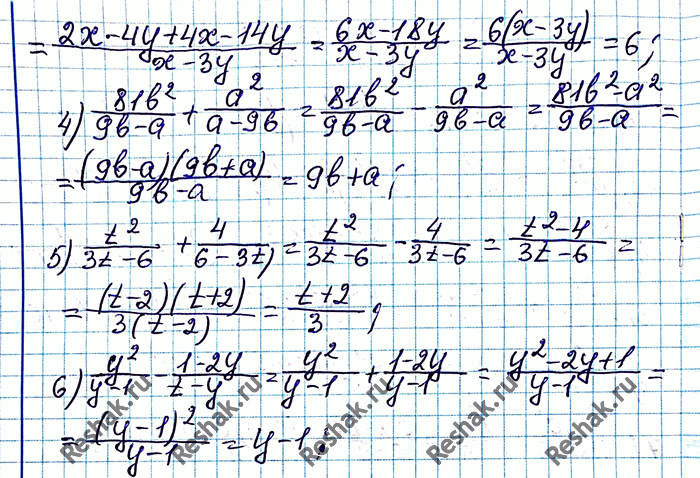 = (2x-4y+4x-14y)/(x-3y) = (6x-18y)/(x-3y) = 6(x-3y)/(x-3y) = 6;
4) 81b²/(9b-a) + a²/(a-9b) = 81b²/(9b-a) - a²/(9b-a) = (81b²-a²)/(9b-a) =
= (9b-a)(9b+a)/(9b-a) = 9b+a;
5) t²/(3t-6) + 4/(6-3t) = t²/(3t-6) - 4/(3t-6) = (t²-4)/(3t-6) =
= (t-2)(t+2)/3(t-2) = (t+2)/3;
6) y²/(y-1) - (1-2y)/(t-y) = y²/(y-1) + (1-2y)/(y-1) = (y²-2y+1)/(y-1) =
= (y-1)²/(y-1) = y-1;
Reshak.ru
Reshak.ru
Reshak.ru
Reshak.ru